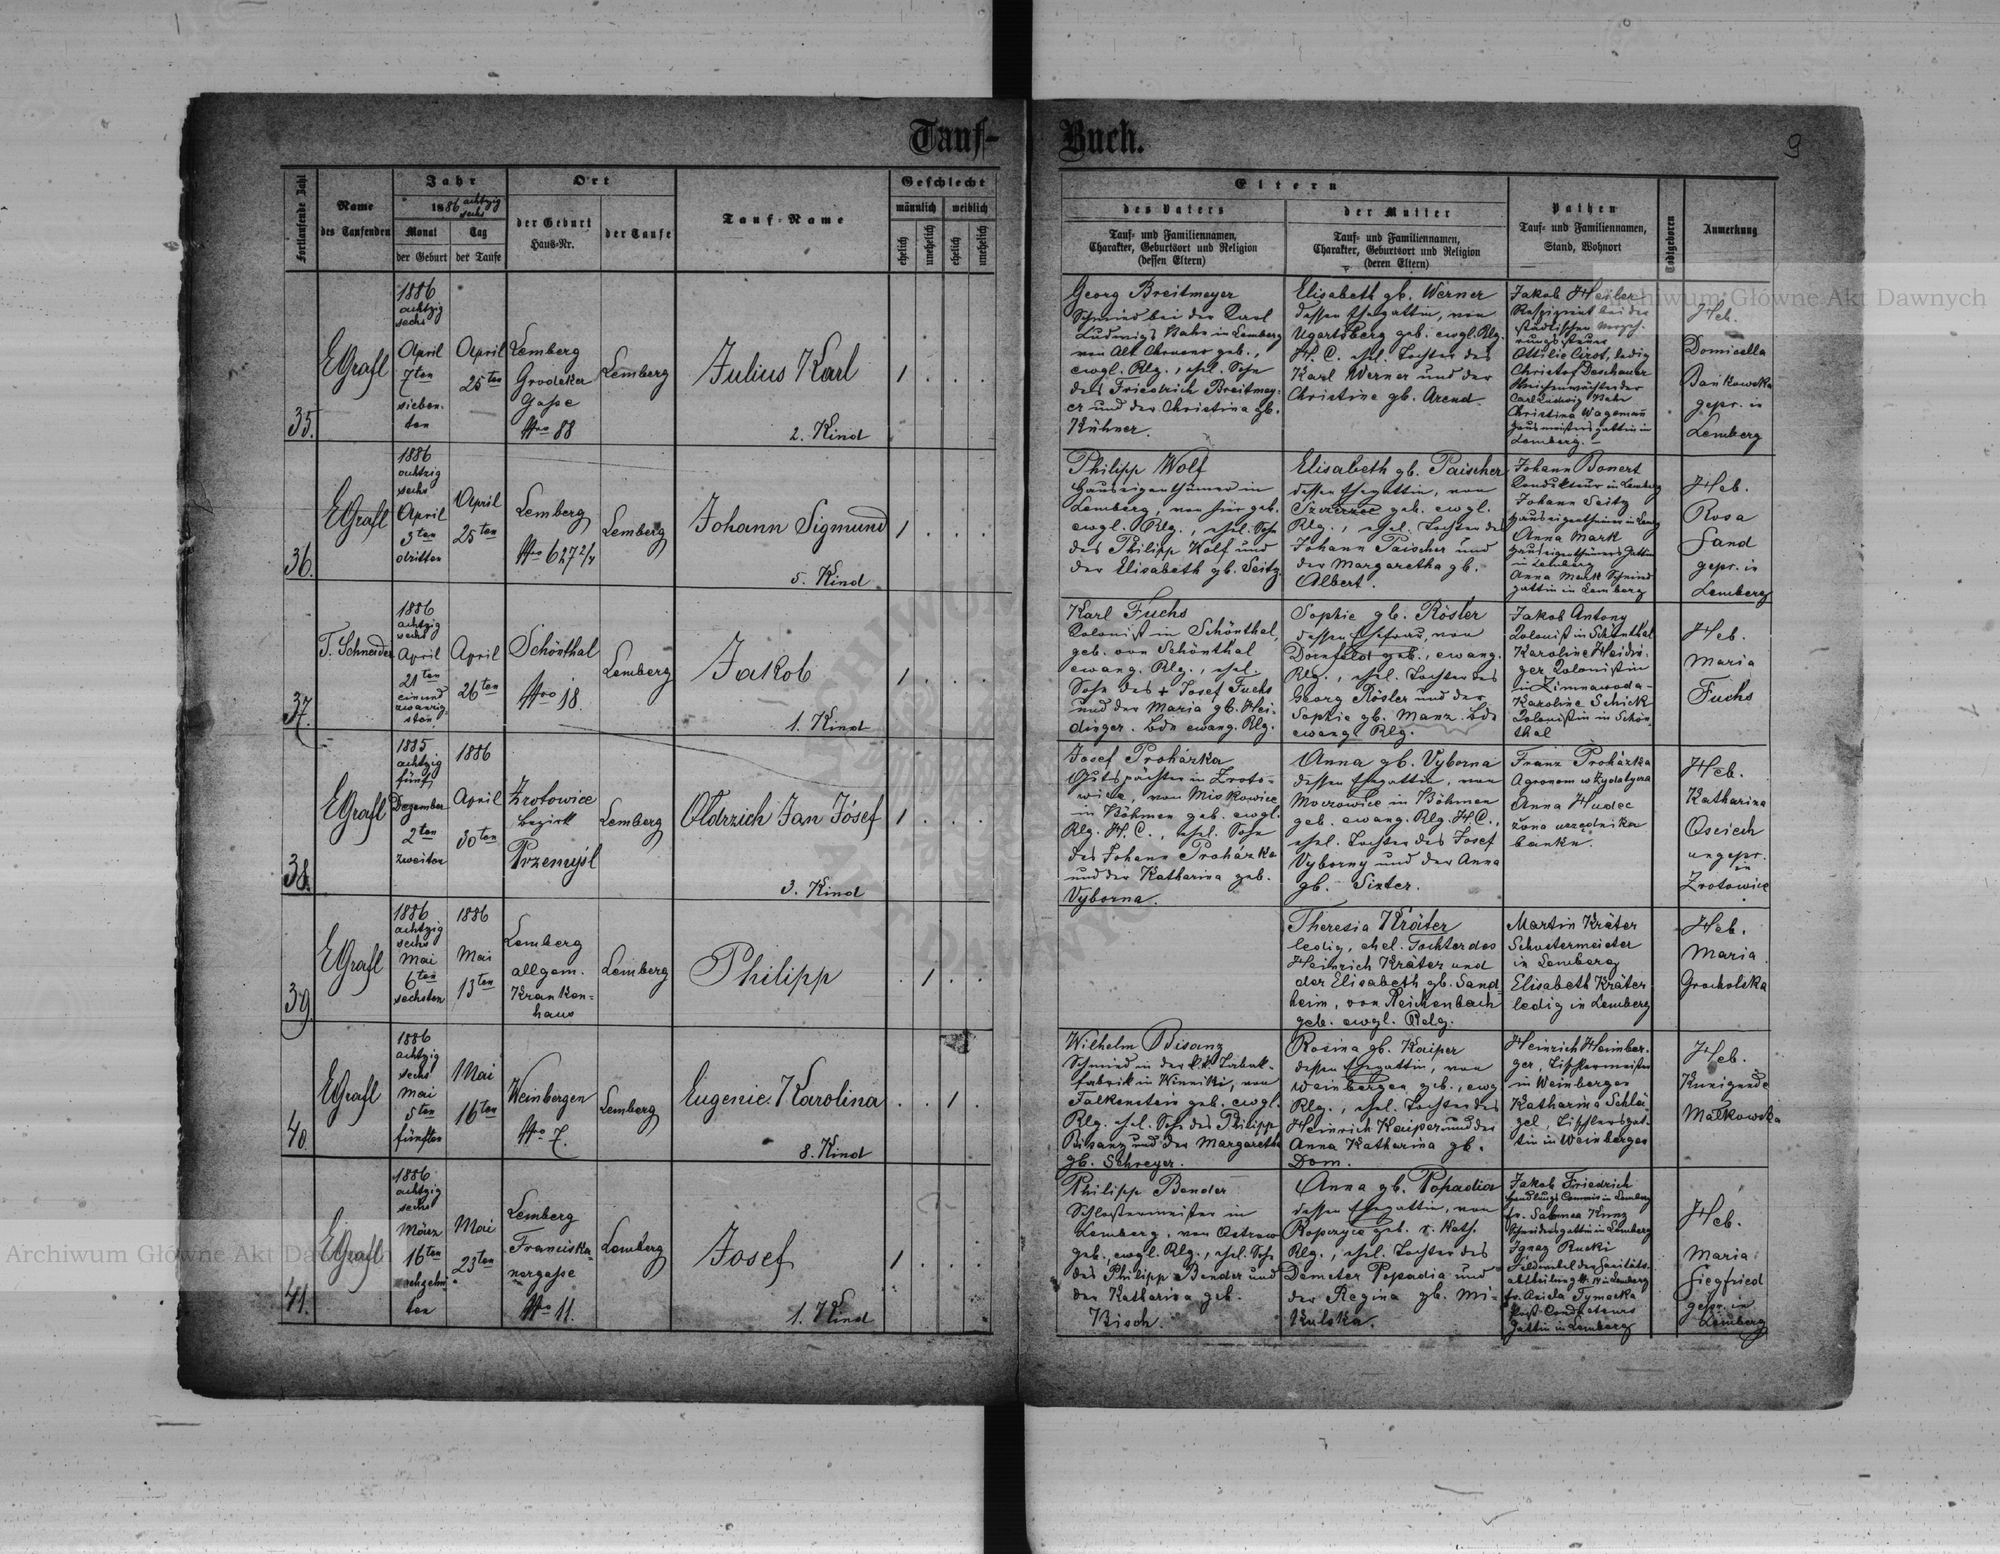 Tauf-Buch.
9
Fortlaufende Zahl
Name
des Taufenden
Jahr
1886 achtzig
sechs
Monat
der Geburt
Tag
der Taufe
Ort
der Geburt
Haus-Nr.
der Taufe
Tauf-Name
Geschlecht
männlich
weiblich
ehelich
unehelich
ehelich
unehelich
Eltern
des Vaters
Tauf- und Familiennamen,
Charakter, Geburtsort und Religion
(dessen Eltern)
der Mutter
Tauf- und Familiennamen,
Charakter, Geburtsort und Religion
(deren Eltern)
Pathen
Tauf- und Familiennamen,
Stand, Wohnort
Todtgeboren
Anmerkung
35.
EGrafl
1886
achtzig
sechs
April
7ten
sieben-
ten
April
25ten
Lemberg
Grodeker
Gasse
Nro 88
Lemberg
Julius Karl
2. Kind
1
Georg Breitmeyer
Schmied bei der Carl
Ludwigs Bahn in Lemberg
von Alt geb.,
ewgl. Rlg., ehel. Sohn
des Friedrich Breitmey-
er und der Christina gb.
Kühner.
Elisabeth gb. Werner
dessen Ehegattin, von
Ugartsberg geb. ewgl. Rlg.
H. C. ehel. Tochter des
Karl Werner und der
Christine gb. Arend.
Jakob Heiler
bei der
städtischen
Ottilie ledig
Christof Deschauer
Carl Ludwig Bahn
Christina Wagemann
Hausmeistersgattin in
Lemberg.
Heb.
Domicella
Bankowska
gepr. in
Lemberg
36.
EGrafl
1886
achtzig
sechs
April
3ten
dritten
April
25ten
Lemberg
Nro 627 2/4
Lemberg
Johann Sigmund
5. Kind
1
Philipp Wolf
Hauseigenthümer in
Lemberg, von hier geb.
ewgl. Rlg., ehel. Sohn
des Philipp Wolf und
der Elisabeth gb. Seitz
Elisabeth gb. Paischer
dessen Ehegattin, von
Szczerzec geb. ewgl.
Rlg., ehel. Tochter des
Johann Paischer und
der Margaretha gb.
Albert.
Johann Bonert
Kondukteur in Lemberg
Johann Seitz
Hauseigenthümer in Lemg
Anna Mark
Hauseigenthümers Gattin
in Lemberg
Anna Mark Schmied
gattin in Lemberg
Heb.
Rosa
Sand
gepr. in
Lemberg
37.
T. Schneider
1886
achtzig
sechs
April
21ten
einund
zwanzig-
sten
April
26ten
Schönthal
Nro 18.
Lemberg
Jakob
1. Kind
1
Karl Fuchs
Kolonist in Schönthal,
geb. von Schönthal
ewang. Rlg., ehel.
Sohn des + Josef Fuchs
und der Maria gb. Hei-
dinger. bde ewang. Rlg.
Sophie gb. Rösler
dessen Ehefrau, von
Dornfeld geb., ewang.
Rlg., ehel. Tochter des
Georg Rösler und der
Sophie gb. Manz. bde
ewang Rlg.
Jakob Antony
Kolonist in Schönthal
Karoline Heidin-
ger Kolonistin
in Zimnawoda
Karoline Schick
Kolonistin in Schön-
thal
Heb.
Maria
Fuchs
38.
EGrafl
1885
achtzig
fünf
Dezember
2ten
zweiten
1886
April
30ten
Zrotowice
bezirk
Przemyśl
Lemberg
Oldrzich Jan Józef
3. Kind
1
Josef Prohárka
Gutspächter in Zroto-
wice, von Miskowice
in Böhmen geb. ewgl.
Rlg. H. C., ehel. Sohn
des Johann Prohárka
und der Katharina geb.
Vyborna.
Anna gb. Vyborna
dessen Ehegattin, von
Mocrowice in Böhmen
geb. ewang. Rlg. H. C.,
ehel. Tochter des Josef
Vyborny und der Anna
gb. Sixter.
Franz Prohárka
Agronom w
Anna Hudec
żona urzędnika
banku.
Heb.
Katharina
Osiech
ungepr.
in
Zrotowice
39.
EGrafl
1886
achtzig
sechs
Mai
6ten
sechsten
1886
Mai
13ten
Lemberg
allgem.
Kranken-
haus
Lemberg
Philipp
1
Theresia Kräter
ledig, ehel. Tochter des
Heinrich Kräter und
der Elisabeth gb. Sand-
heim, von Reichenbach
geb. ewgl. Relg.
Martin Kräter
Schustermeister
in Lemberg
Elisabeth Kräter
ledig in Lemberg
Heb.
Maria
Grocholska
40.
EGrafl
1886
achtzig
sechs
Mai
5ten
fünften
Mai
16ten
Weinbergen
Nro 7.
Lemberg
Eugenie Karolina
8. Kind
1
Wilhelm Bisanz
Schmied in der k.k. Tabak-
fabrik in Winniki, von
Falkenstein geb. ewgl.
Rlg. ehel. Sohn des Philipp
Bisanz und der Margaretha
gb. Schreyer.
Rosina gb. Kaiper
dessen Ehegattin, von
Weinbergen geb., ewg
Rlg., ehel. Tochter des
Heinrich Kaiper und der
Anna Katharina gb.
Dom.
Heinrich Heimber-
ger, Tischlermeister
in Weinbergen
Katharina Schlä-
gel, Tischlersgat-
tin in Weinbergen
Heb.
Kunigunde
Małkowska
41.
EGrafl
1886
achtzig
sechs
März
16ten
sechzehn-
ten
Mai
23ten
Lemberg
Franciska-
nergasse
Nro 11.
Lemberg
Josef
1. Kind
1
Philipp Bender
Schlossermeister in
Lemberg, von Ostrow
geb. ewgl. Rlg., ehel. Sohn
des Philipp Bender und
der Katharina geb.
Bisch.
Anna gb. Popadia
dessen Ehegattin, von
Ropczyce geb. r. Kath.
Rlg., ehel. Tochter des
Demeter Popadia und
der Regina gb. Mi-
kulska.
Jakob Friedrich
Handlungs Commis in Lemberg
fr. Salomea Kunz
Schneidersgattin in Lemberg
Ignaz Rucki
Feldwebel der Sanitäts-
abtheilung in Lemberg
fr. Aniela Tymecka
Post-Conducteurs
Gattin in Lemberg
Heb.
Maria
Siegfried
gepr. in
Lemberg
Archiwum Główne Akt Dawnych
Archiwum Główne Akt Dawnych